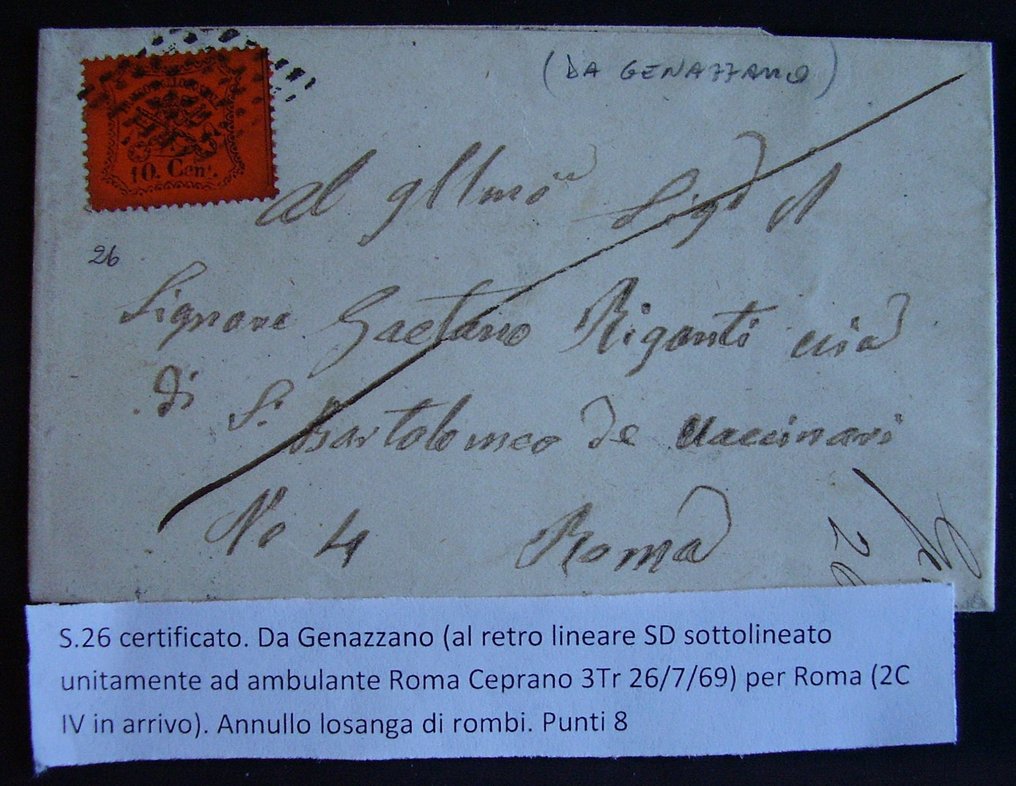 (DA GENAZZANO)
10. Cent.
Al Illmo Sigr Il
26
Signore Gaetano Riganti via
di S. Bartolomeo de Vaccinari
No 4 Roma
S.26 certificato. Da Genazzano (al retro lineare SD sottolineato
unitamente ad ambulante Roma Ceprano 3Tr 26/7/69) per Roma (2C
IV in arrivo). Annullo losanga di rombi. Punti 8